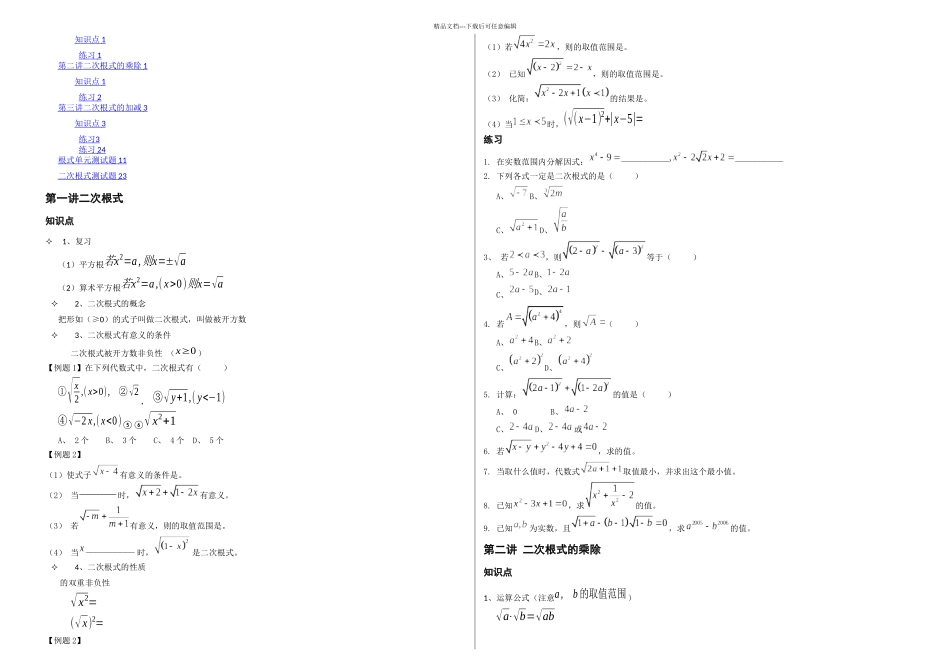 精品文档---下载后可任意编辑
知识点 1
练习 1
第二讲二次根式的乘除 1
知识点 1
练习 2
第三讲二次根式的加减 3
知识点 3
练习3
练习 24
根式单元测试题 11
二次根式测试题 23
第一讲二次根式
知识点
✧ 1、复习
（1）平方根若x²=a,则x=±√a
（2）算术平方根若x²=a,(x>0)则x=√a
✧ 2、二次根式的概念
把形如（≥0）的式子叫做二次根式，叫做被开方数
✧ 3、二次根式有意义的条件
二次根式被开方数非负性 （x≥0）
【例题 1】在下列代数式中，二次根式有（ ）
①√(x/2),(x>0), ②√2 , ③√(y+1),(y<−1)
④√(−2x),(x<0)⑤⑥√(x²+1)
A、 2 个 B、 3 个 C、 4 个 D、 5 个
【例题 2】
（1）使式子√(x−4)有意义的条件是。
（2） 当________时，√(x+2)+√(1−2x)有意义。
（3） 若√(−m)+1/(m+1)有意义，则的取值范围是。
（4） 当x__________时，√((1−x)²)是二次根式。
✧ 4、二次根式的性质
的双重非负性
√(x²)=
(√x)²=
【例题 2】
（1）若√(4x²)=2x，则的取值范围是。
（2） 已知√((x−2)²)=2−x，则的取值范围是。
（3） 化简：√(x²−2x+1)(x<1)的结果是。
（4）当1≤x<5时，(√((x−1)²)+|x−5|=
练习
1. 在实数范围内分解因式：x⁴−9=__________,x²−2√2x+2=__________
2. 下列各式一定是二次根式的是（ ）
A、√−7 B、∛(2m)
C、√(a²+1) D、√(a/b)
3、 若2<a<3，则√((2−a)²)−√((a−3)²)等于（ ）
A、5−2a B、1−2a
C、2a−5 D、2a−1
4. 若A=√((a²+4)⁴)，则√A=（ ）
A、a²+4 B、a²+2
C、(a²+2)² D、(a²+4)²
5. 计算：√((2a−1)²)+√((1−2a)²)的值是（ ）
A、 0 B、4a−2
C、2−4a D、2−4a或4a−2
6. 若√(x−y)+y²−4y+4=0，求的值。
7. 当取什么值时，代数式√(2a+1)+1取值最小，并求出这个最小值。
8. 已知x²−3x+1=0，求√(x²+1/x²−2)的值。
9. 已知a,b为实数，且√(1+a)−(b−1)√(1−b)=0，求a²⁰⁰⁵−b²⁰⁰⁶的值。
第二讲 二次根式的乘除
知识点
1、运算公式（注意a， b的取值范围 ）
√a·√b=√ab